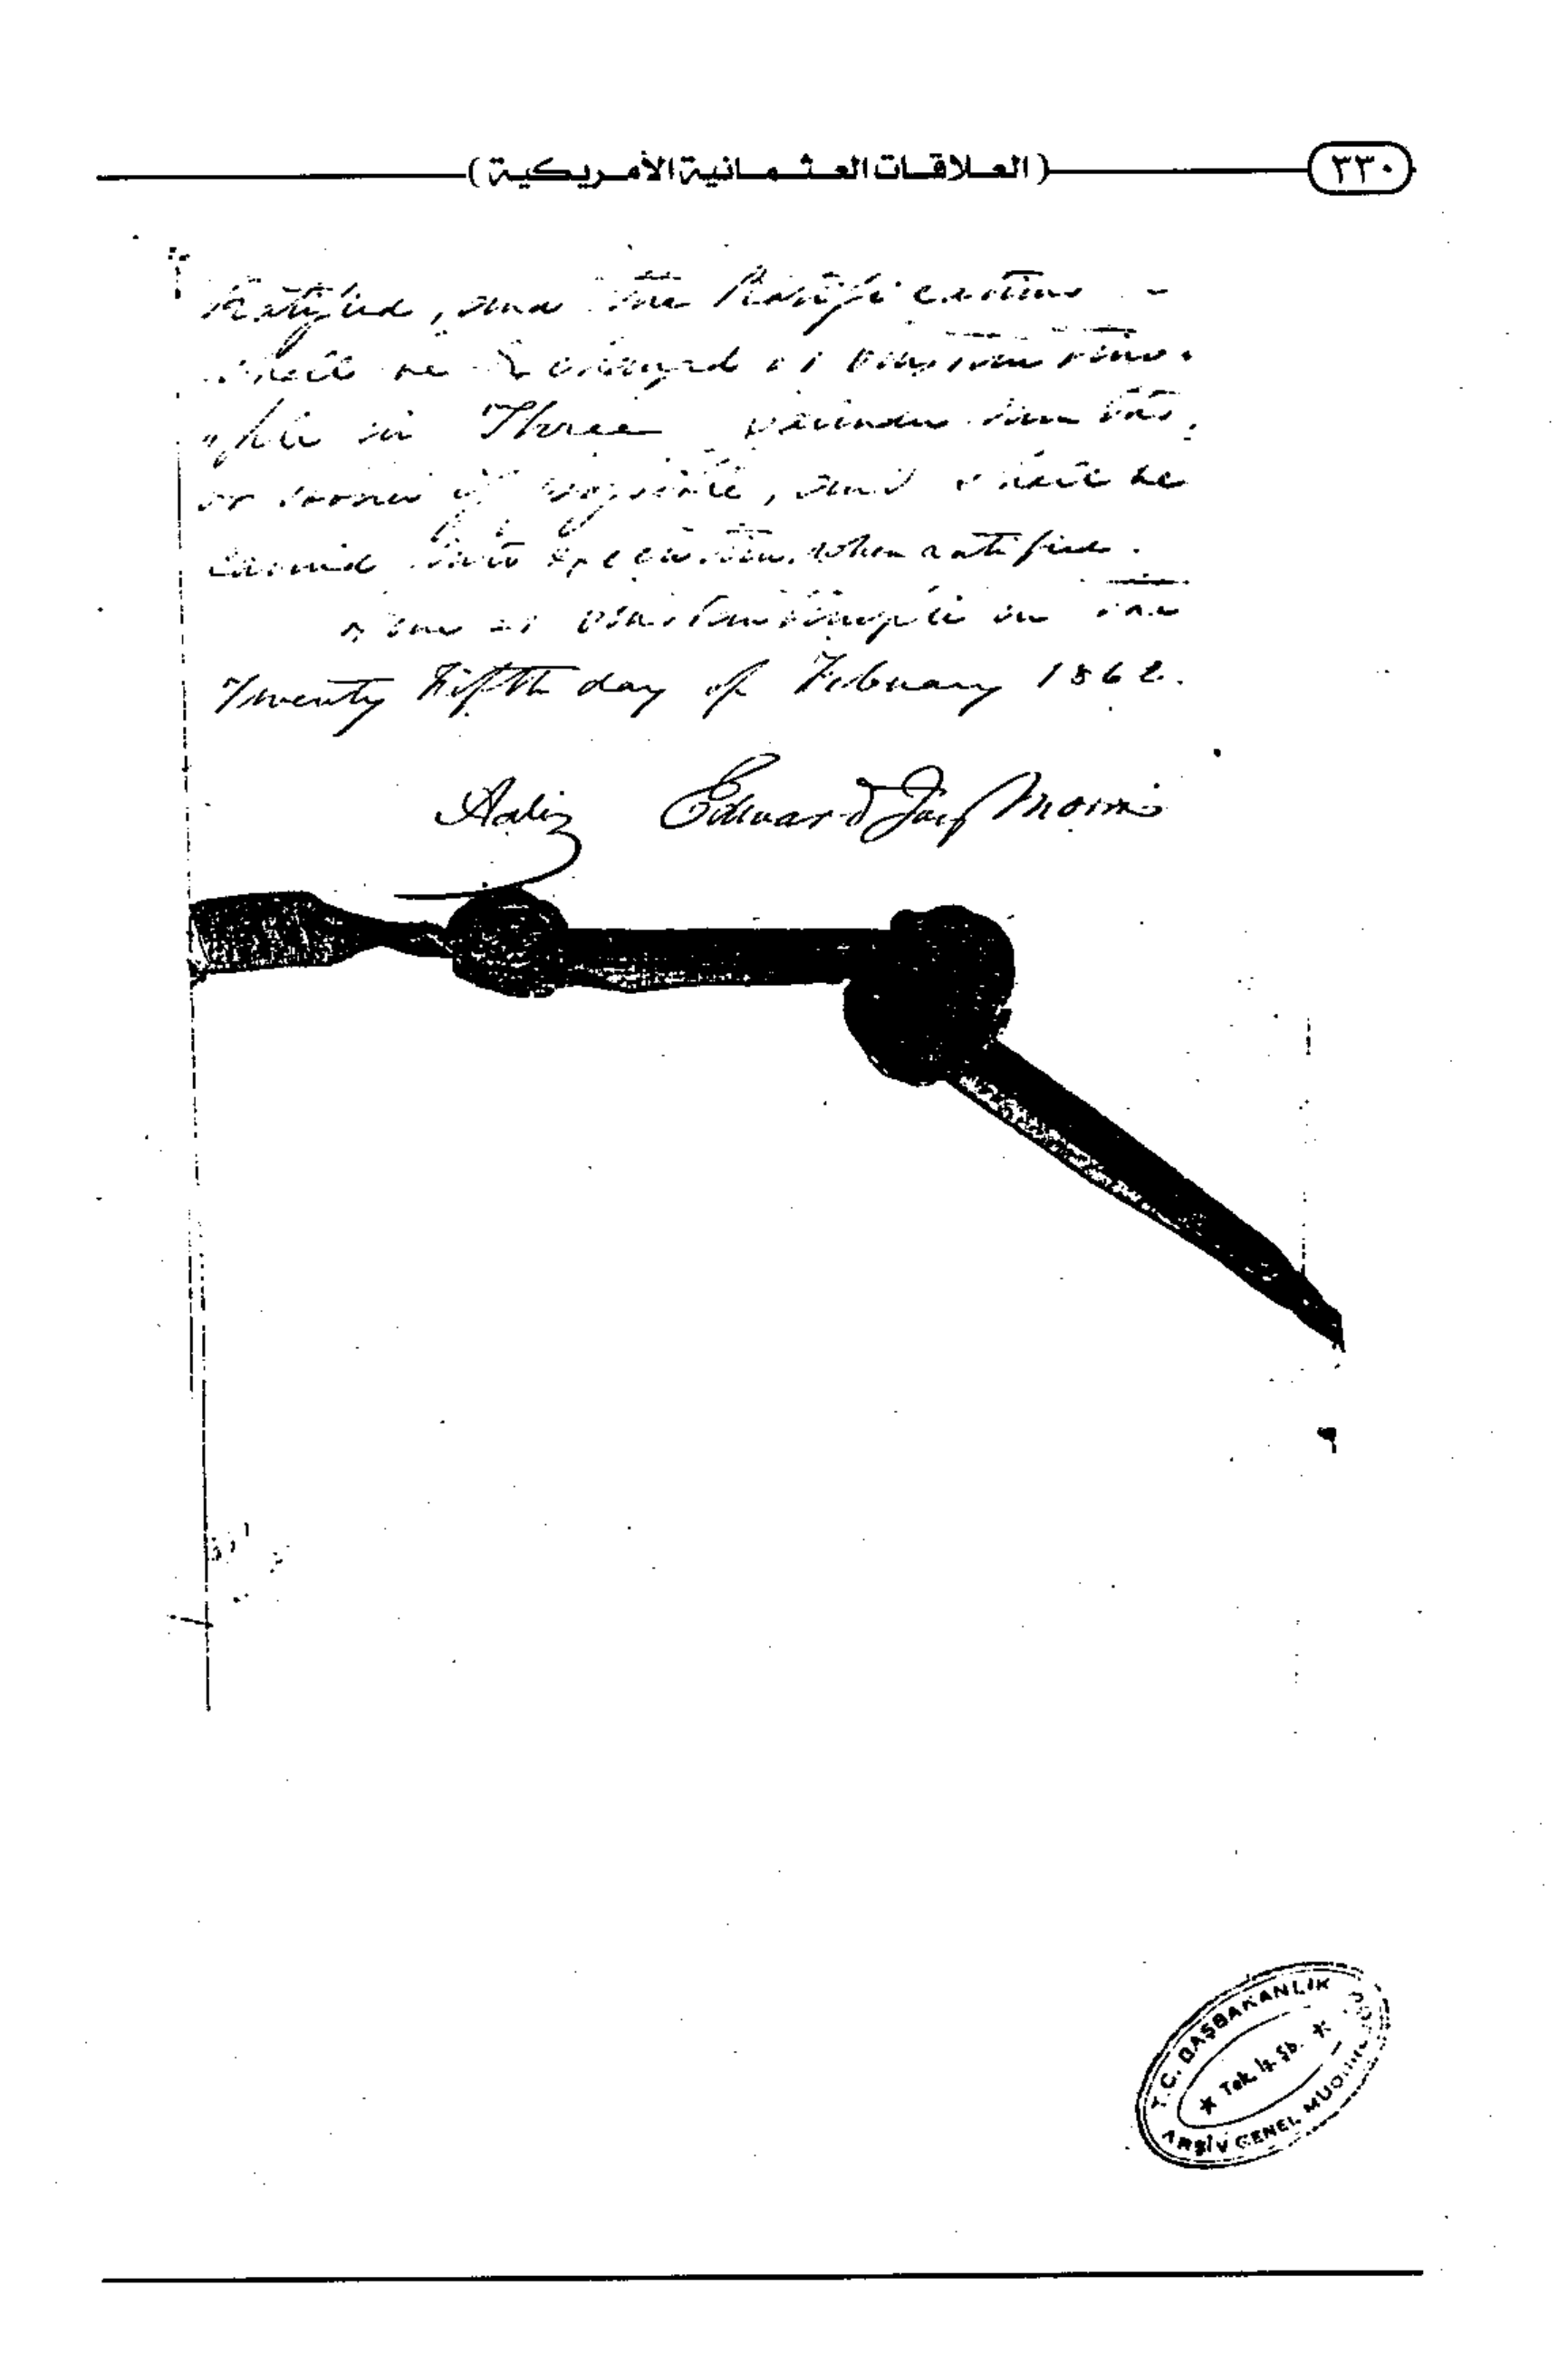 (العلاقات العثمانية الأمريكية)
٣٣٠
Ratified, and the Ratifications
shall be Exchanged at Constantino-
-ple in Three Calendar months,
or sooner if possible, and shall be
carried into Execution when ratified.
Done at Constantinople on the
Twenty Fifth day of February 1862.
Aali Edward Joy Morris
T.C. BAŞBAKANLIK
ARŞİV GENEL